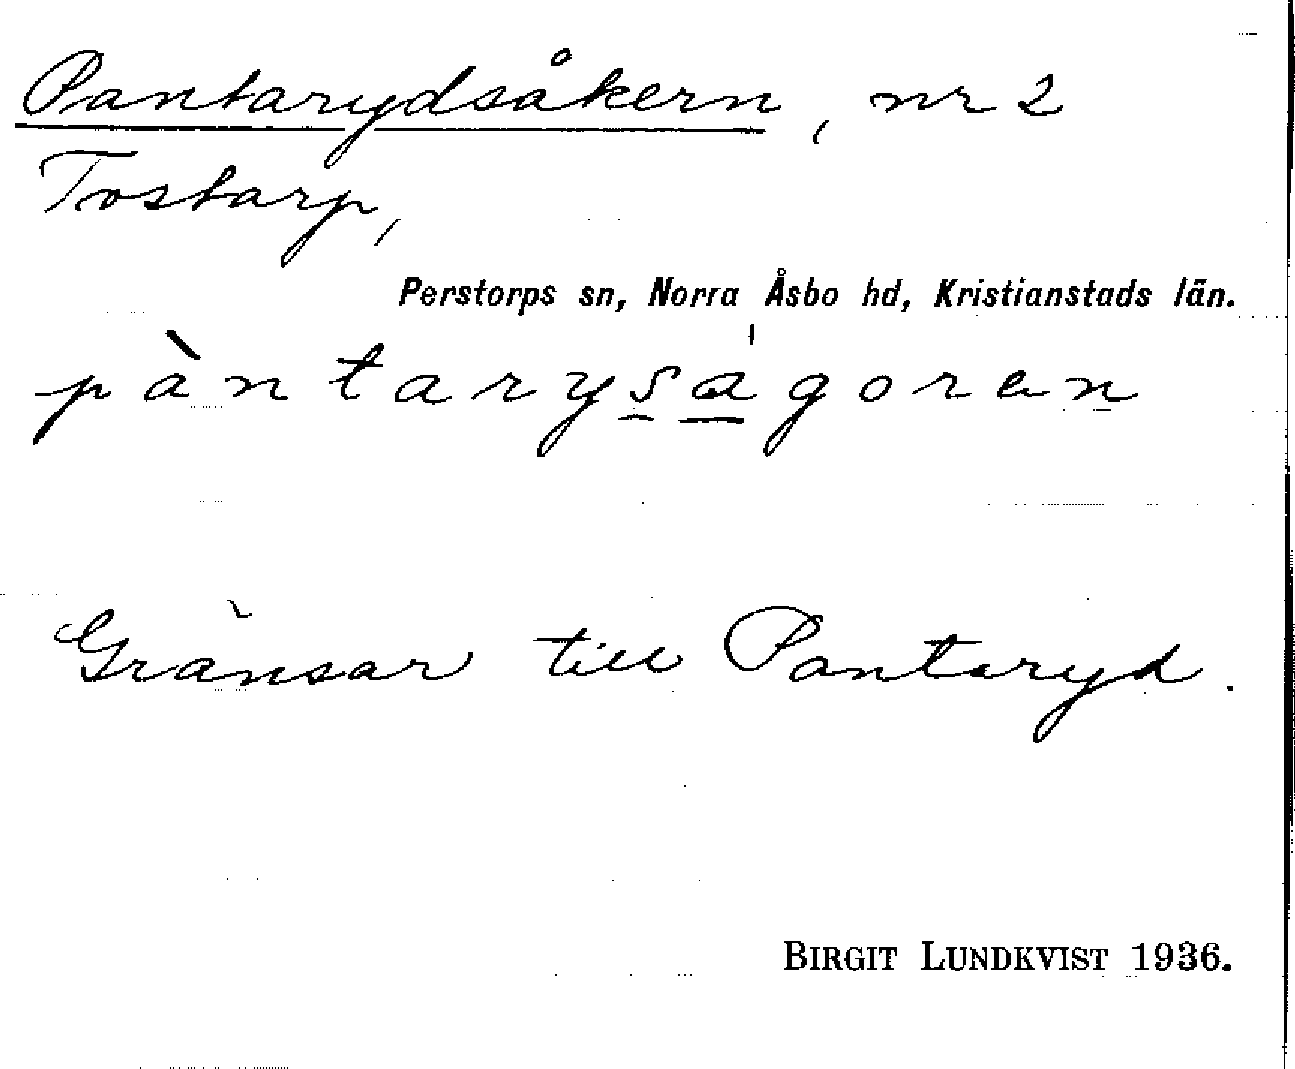 Pantarydsåkern, nr 2
Tostarp,
Perstorps sn, Norra Åsbo hd, Kristianstads län.
pàntarysagoran
Gränsar till Pantaryd.
BIRGIT LUNDKVIST 1936.